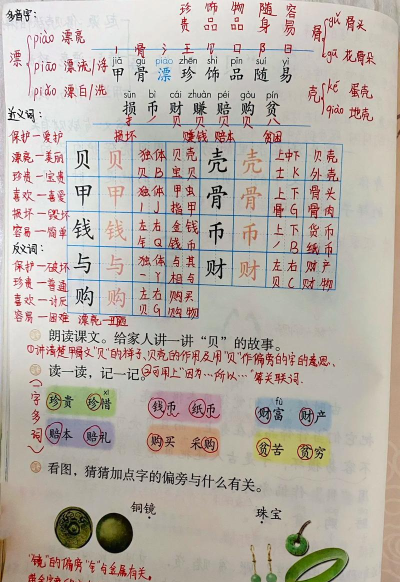 多音字:
珍 饰 物 随 容
贵 品 品 身 易
piào 漂亮
漂 piāo 漂流/浮
piǎo 漂白/洗
骨 gǔ 骨头
gū 花骨朵
壳 ké 蛋壳
qiào 地壳
jiǎ gǔ piào zhēn shì pǐn suí yì
甲 骨 漂 珍 饰 品 随 易
sǔn bì cái zhuàn péi gòu pín
损 币 财 赚 赔 购 贫
近义词:
损坏 赚钱 赔本 贫困
保护—爱护
漂亮—美丽
珍贵—宝贵
喜欢—喜爱
损坏—毁坏
容易—简单
反义词:
保护—破坏
珍贵—普通
喜欢—讨厌
容易—困难 漂亮—丑陋
贝 贝 独体 贝壳 壳 壳 上中下 贝壳
贝 B 宝贝 士 K 外壳
甲 甲 独体 甲虫 骨 骨 上下 骨头
J 指甲 骨 G 骨肉
钱 钱 左右 金钱 币 币 上下 货币
钅 Q 钱币 丿 B 纸币
与 与 独体 与其 财 财 左右 财产
一 Y 相与 贝 C 财物
购 购 左右 购买
贝 G 购物
朗读课文。给家人讲一讲“贝”的故事。
①讲清楚甲骨文“贝”的样子、贝壳的作用及用“贝”作偏旁的字的意思。
读一读,记一记。②可用上“因为…所以…”等关联词.
(一字多词)
xī
珍贵 珍惜 钱币 纸币
fù
财富 财产
赔本 赔礼 购买 采购 贫苦 贫穷
看图,猜猜加点字的偏旁与什么有关。
铜镜 珠宝
“镜”的偏旁“钅”与金属有关。